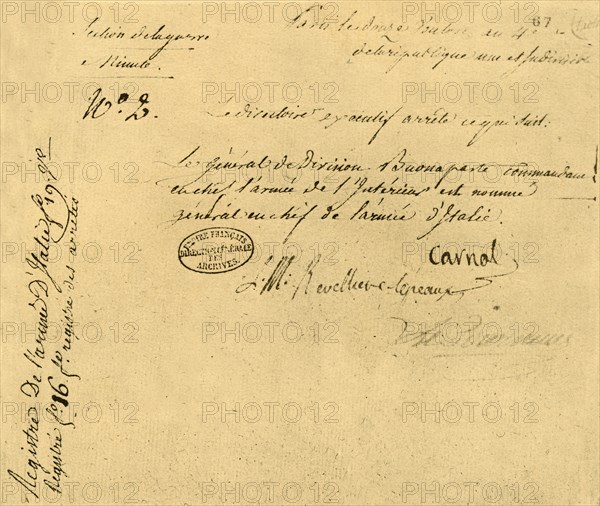 Section de la guerre
Minute
Paris le douze Ventose an 4e
de la république une et indivisible
67
No. 2.
Le directoire exécutif arrête ce qui suit:
Le général de Division Buonaparte commandant
en chef l'armée de l'Intérieur est nommé
général en chef de l'armée d'Italie.
Carnot
L. M. Revelliere-lepeaux
CENTRE FRANÇAIS
DES
ARCHIVES.
Registre De l'armée D'Italie fo 19 
Régistré fo 16 registre des arrêtés
PHOTO 12